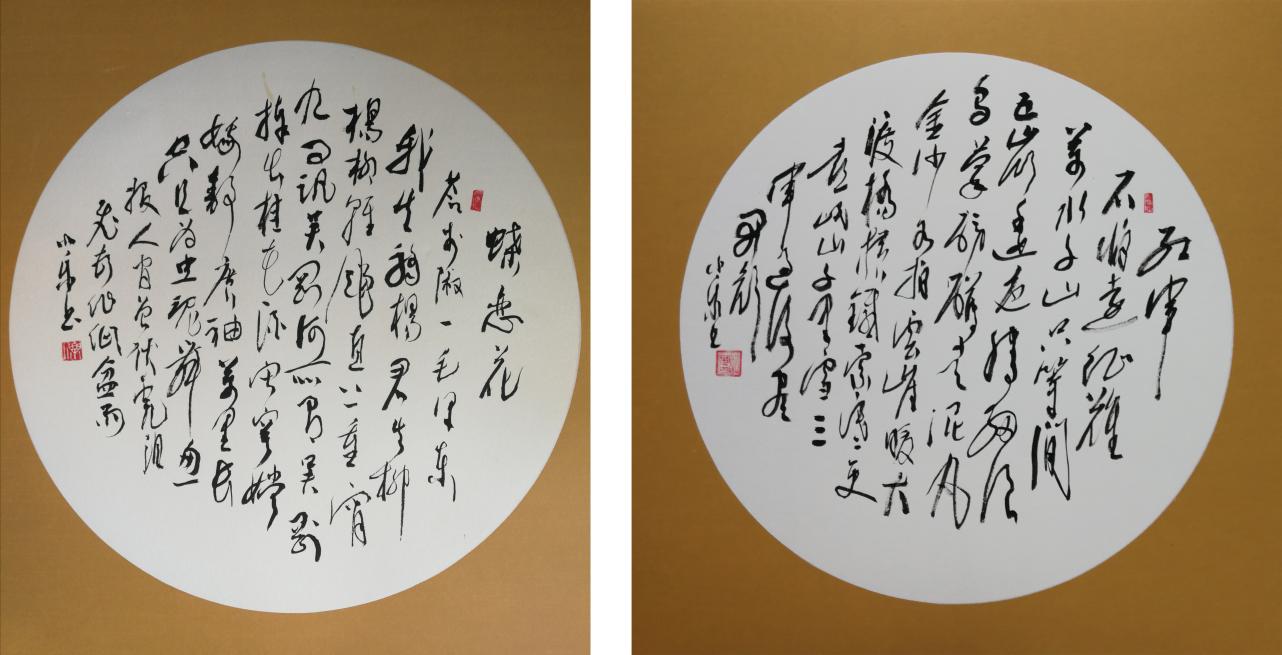 蝶恋花
答李淑一毛泽东
我失骄楊君失柳
楊柳轻飏直上重霄
九问讯吴刚何所有吴刚
捧出桂花酒寂寞嫦
娥舒广袖萬里长
空且为忠魂舞忽
报人间曾伏虎泪
飞顿作倾盆雨
书
红军
不怕遠征難
萬水千山只等闲
五岭逶迤腾细浪
乌蒙磅礴走泥丸
金沙水拍雲崖暖大
渡橋横鐵索寒更
喜岷山千里雪三
军过后尽
开颜
书